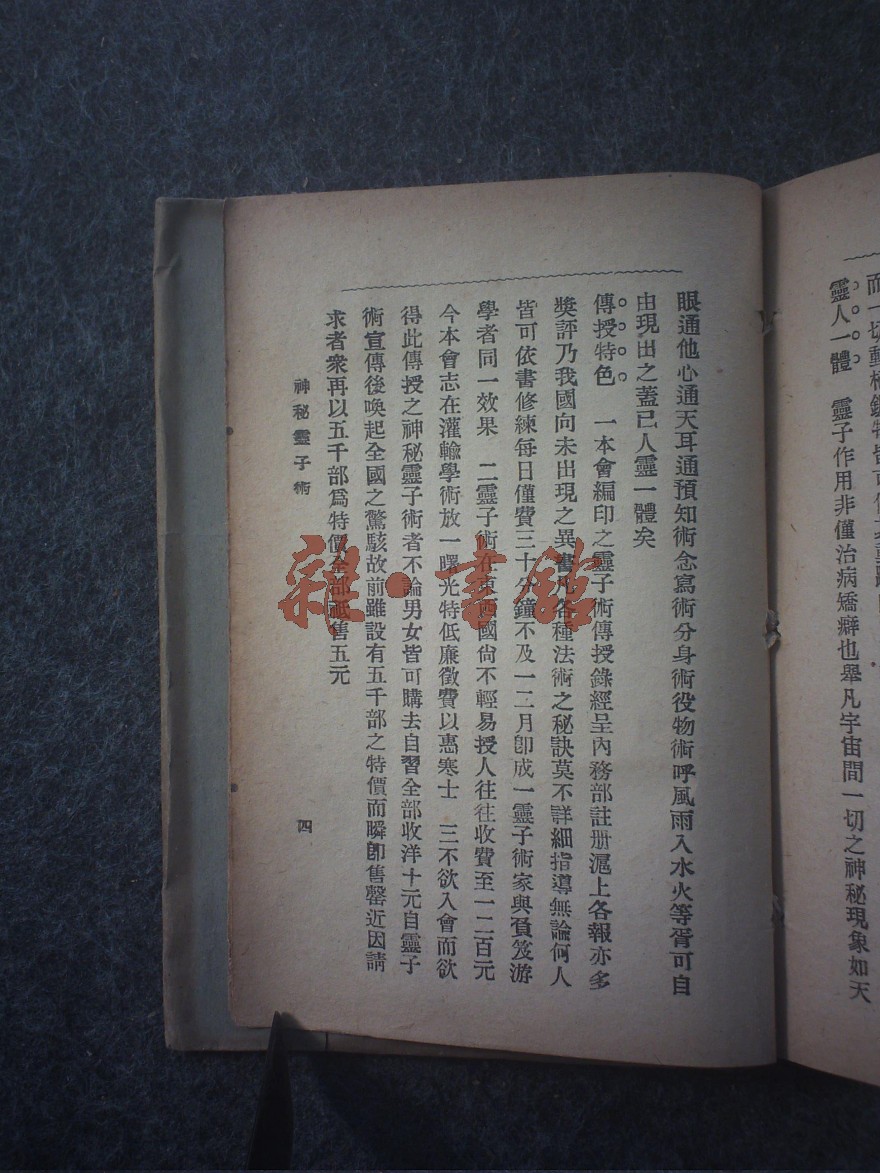 而一切動
靈人一體　靈子作用非僅治病矯癖也舉凡宇宙間一切之神秘現象如天
眼通他心通天耳通預知術念寫術分身術役物術呼風雨入水火等胥可自
由現出之蓋已人靈一體矣
傳授特色　一本會編印之靈子術傳授錄經呈內務部註册滬上各報亦多
獎評乃我國向未出現之異書凡各種法術之秘訣莫不詳細指導無論何人
皆可依書修練每日僅費三十分鐘不及一二月卽成一靈子術家與負笈游
學者同一效果　二靈子術在東西國尙不輕易授人往往收費至一二百元
今本會志在灌輸學術放一曙光特低廉徵費以惠寒士　三不欲入會而欲
得此傳授之神秘靈子術者不論男女皆可購去自習全部收洋十元自靈子
術宣傳後喚起全國之驚駭故前雖設有五千部之特價而瞬卽售罄近因請
求者衆再以五千部爲特價全部祇售五元
神秘靈子術
四
雜·書館